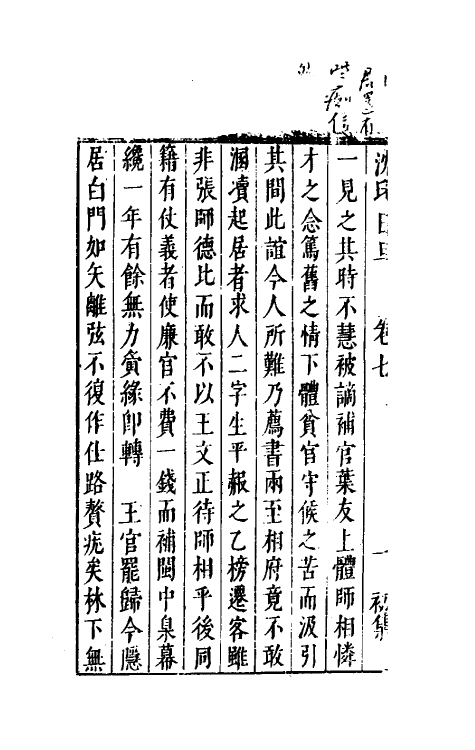 卷七
初集
一見之其時不慧被謫補官葉友上體師相憐
才之念篤舊之情下體貧官守候之苦而汲引
其間此誼今人所難乃薦書兩至相府竟不敢
溷凟起居者求人二字生平赧之乙榜遷客雖
非張師德比而敢不以王文正待師相乎後同
籍有仗義者使廉官不費一錢而補閩中臬幕
纔一年有餘無力夤緣卽轉　王官罷歸今隱
居白門如矢離弦不復作仕路贅疣矣林下無